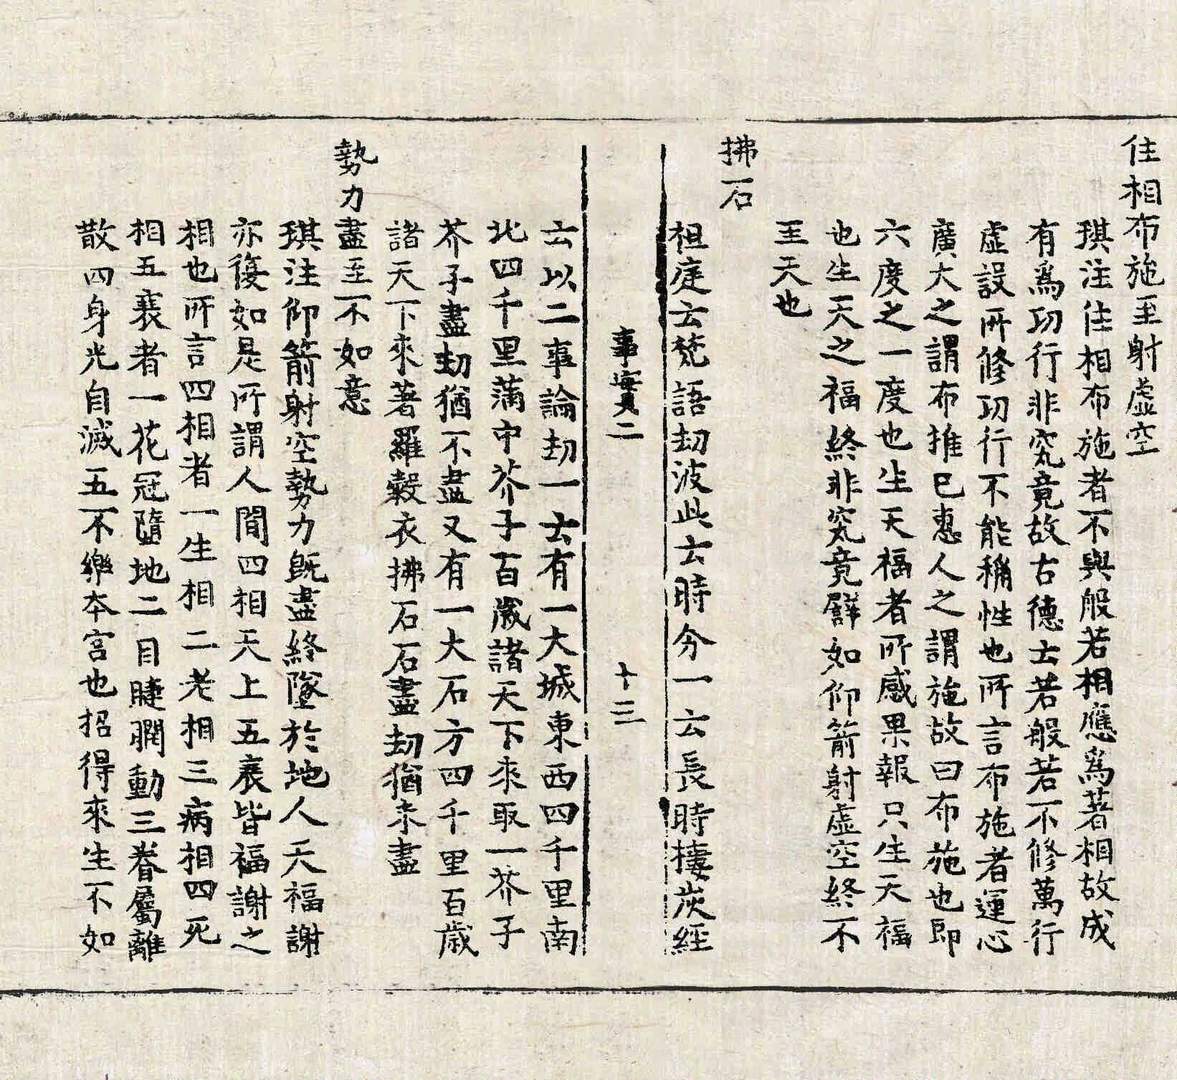 住相布施至射虚空
琪注住相布施者不與般若相應爲著相故成
有爲功行非究竟故古德云若般若不修萬行
虚設所修功行不能稱性也所言布施者運心
廣大之謂布推己惠人之謂施故曰布施也即
六度之一度也生天福者所感果報只生天福
也生天之福終非究竟譬如仰箭射虚空終不
至天也
拂石
祖庭云梵語劫波此云時分一云長時摟炭經
事實二
十三
云以二事論劫一云有一大城東西四千里南
北四千里蒲中芥子百歲諸天下來取一芥子
芥子盡劫猶不盡又有一大石方四千里百歲
諸天下來著羅縠衣拂石石盡劫猶未盡
勢力盡至不如意
琪注仰箭射空勢力既盡終墜於地人天福謝
亦復如是所謂人間四相天上五衰皆福謝之
相也所言四相者一生相二老相三病相四死
相五衰者一花冠隨地二目睫瞤動三眷屬離
散四身光自滅五不樂本宮也招得來生不如